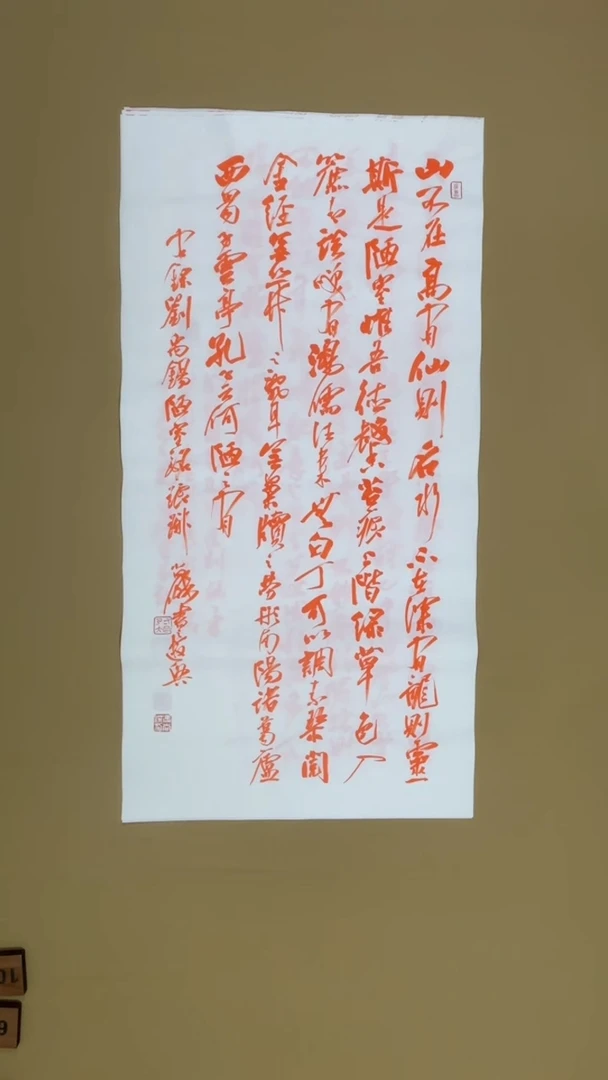 山不在高有仙則名水不在深有龍則靈
斯是陋室惟吾德馨苔痕上階綠草色入
簾青談笑有鴻儒往來無白丁可以調素琴閱
金經無絲竹之亂耳無案牘之勞形南陽諸葛廬
西蜀子雲亭孔子云何陋之有
錄劉禹錫陋室銘
10
9